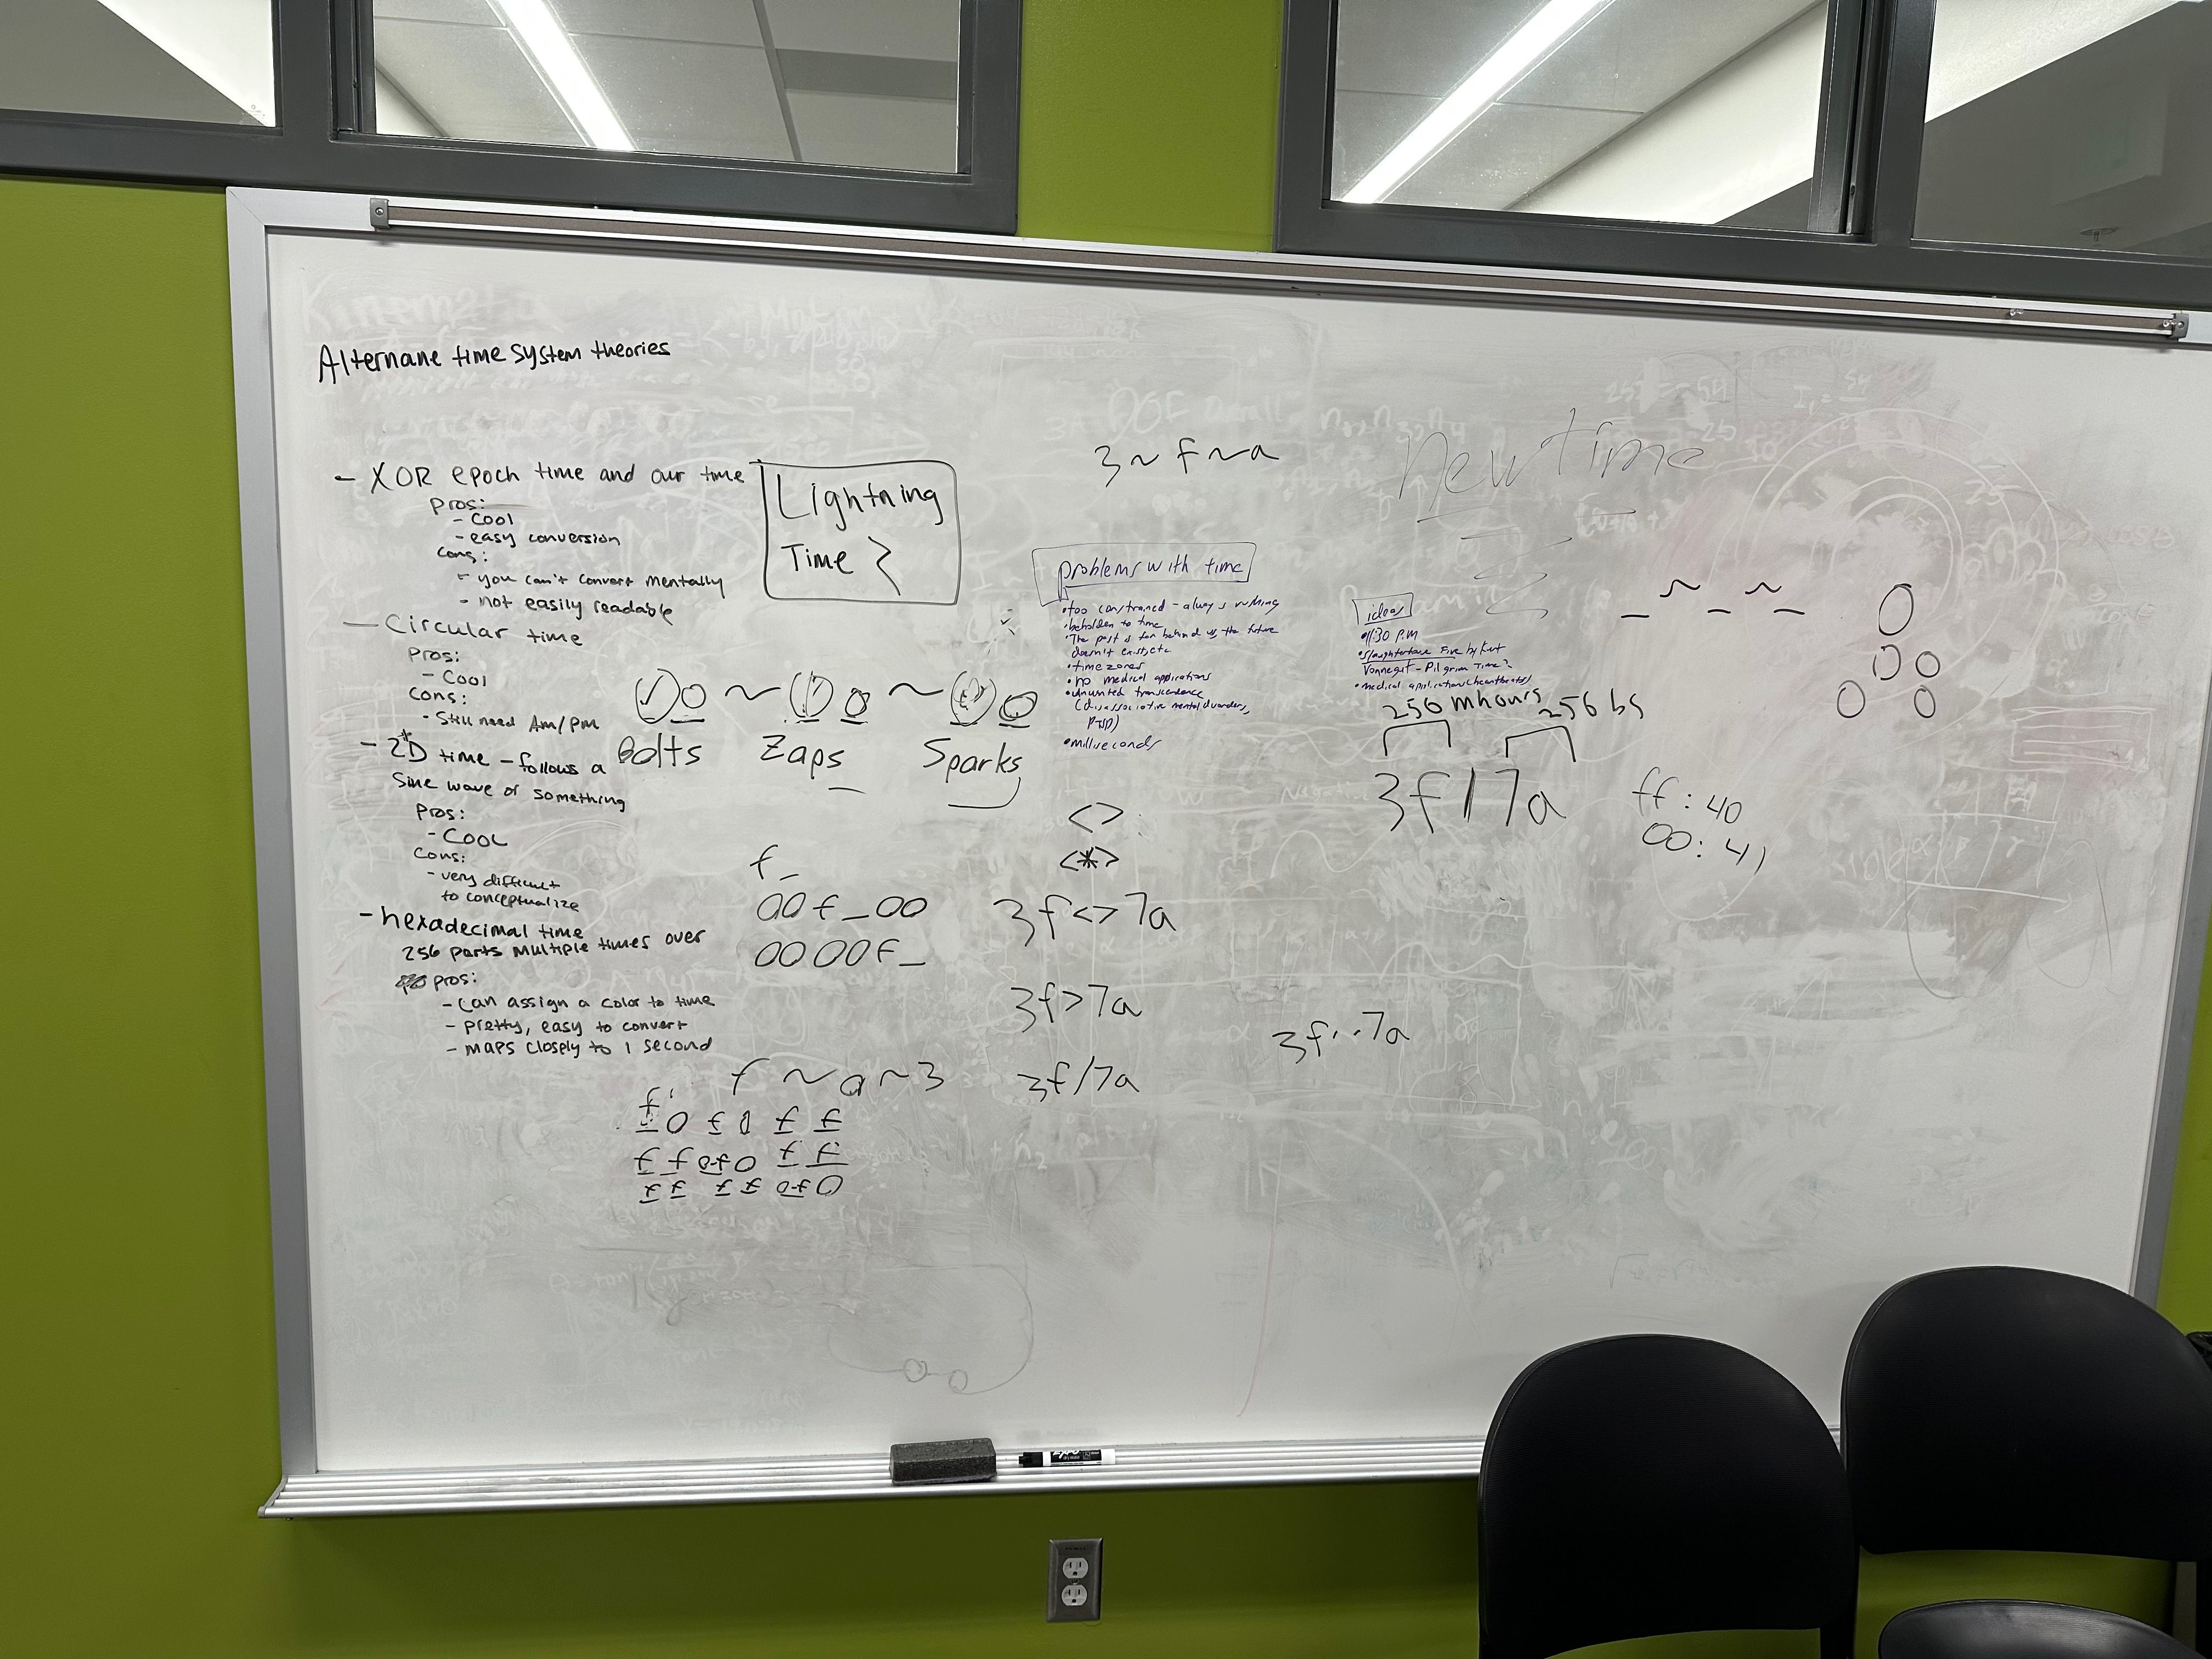 Alternane time system theories
- XOR epoch time and our time
Pros:
- Cool
- easy conversion
Cons:
- you can't convert mentally
- not easily readable
- Circular time
Pros:
- Cool
Cons:
- Still need AM/PM
- 2D time - follows a
Sine wave or something
Pros:
- COOL
Cons:
- very difficult
to conceptualize
- hexadecimal time
256 parts multiple times over
pros:
- Can assign a color to time
- pretty, easy to convert
- maps closely to 1 second
Lightning
Time
~ ~
Bolts Zaps Sparks
f_
00f_00
0000f_
f~a~3
3~f~a
problems with time
• too constrained - always rushing
• beholden to time
• The past is far behind us, the future
doesn't exist, etc
• time zones
• no medical applications
• unwanted transcendence
(disassociative mental disorders,
PTSD)
• milliseconds
<>
<*>
3f<>7a
3f>7a
3f/7a
3f..7a
New Time
ideas
• 11:30 P.M
• Slaughterhouse Five by Kurt
Vonnegut - Pilgrim Time?
• medical applications (heartbeats)
256 mhours 256 bs
3f|7a
ff:40
00:41